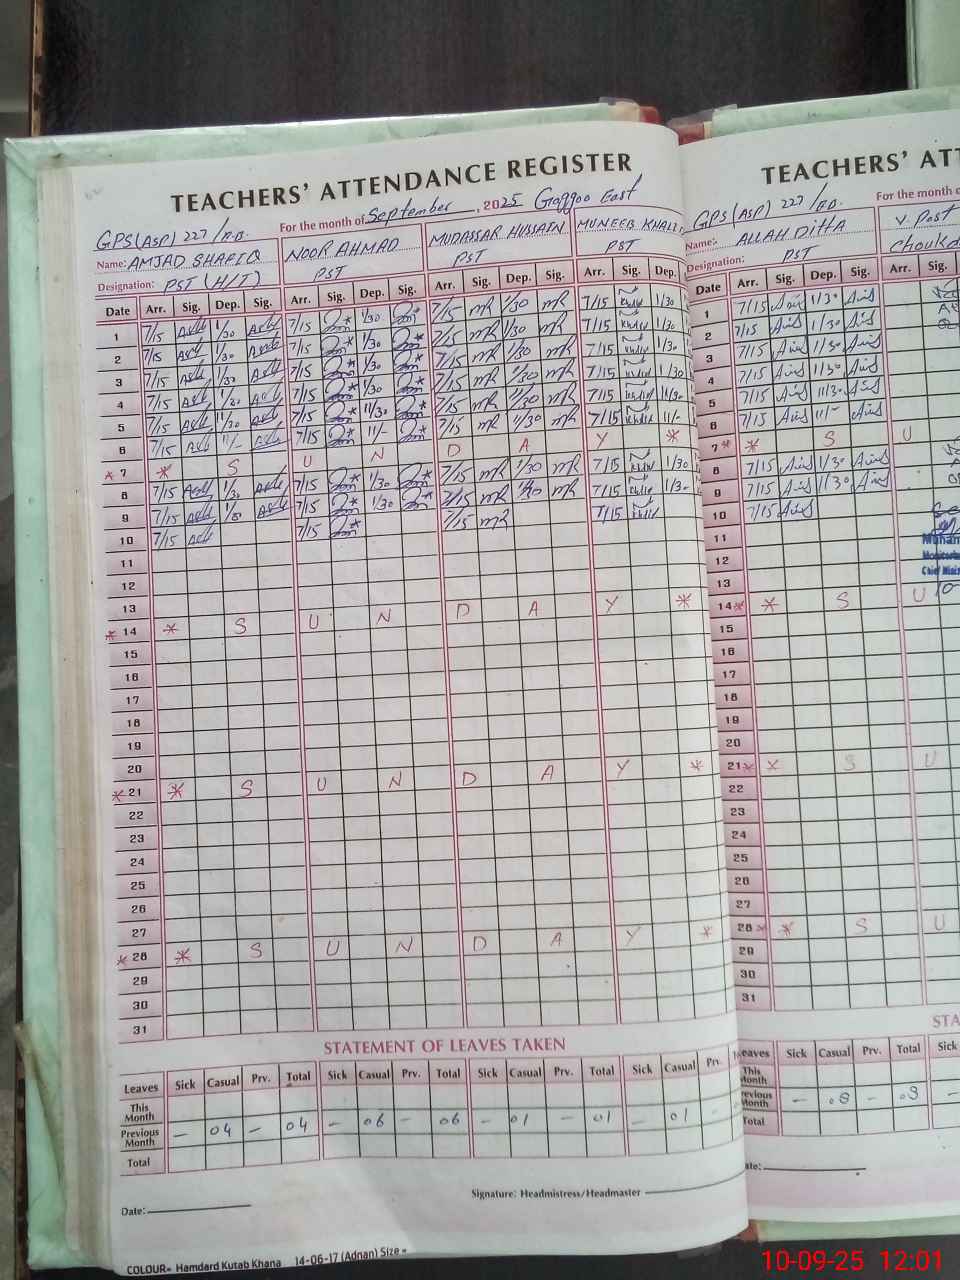 TEACHERS' ATTENDANCE REGISTER
GPS(ASP) 227/E.B. For the month of September, 2025 Gaggoo East
Name: AMJAD SHAFIQ NOOR AHMAD MUDASSAR HUSSAIN MUNEEB KHALI
Designation: PST (H/T) PST PST PST
Date Arr. Sig. Dep. Sig. Arr. Sig. Dep. Sig. Arr. Sig. Dep. Sig. Arr. Sig. Dep.
1 7/15 1/30 7/15 1/30 7/15 1/30 7/15 1/30
2 7/15 1/30 7/15 1/30 7/15 1/30 7/15 1/30
3 7/15 1/30 7/15 1/30 7/15 1/30 7/15 1/30
4 7/15 1/30 7/15 1/30 7/15 1/30 7/15 1/30
5 7/15 11/30 7/15 11/30 7/15 11/30 7/15 11/30
6 7/15 11/- 7/15 11/- 7/15 11/30 7/15 11/-
* 7 * S U N D A Y *
8 7/15 1/30 7/15 1/30 7/15 1/30 7/15 1/30
9 7/15 1/30 7/15 1/30 7/15 1/30 7/15 1/30
10 7/15 7/15 7/15 7/15
11
12
13
* 14 * S U N D A Y *
15
16
17
18
19
20
* 21 * S U N D A Y *
22
23
24
25
26
27
* 28 * S U N D A Y *
29
30
31
STATEMENT OF LEAVES TAKEN
Leaves Sick Casual Prv. Total Sick Casual Prv. Total Sick Casual Prv. Total Sick Casual Prv.
This Month
Previous Month - 04 - 04 - 06 - 06 - 01 - 01 - 01 -
Total
Signature: Headmistress/Headmaster
Date:
COLOUR= Hamdard Kutab Khana 14-06-17 (Adnan) Size =
TEACHERS' ATT
GPS(ASP) 227/E.B. For the month o
Name: ALLAH DITTA V. Post
Designation: PST
Date Arr. Sig. Dep. Sig. Arr.
1 7/15 1/30
2 7/15 1/30
3 7/15 1/30
4 7/15 11/30
5 7/15 11/30
6 7/15 11/-
7 * * S U
8 7/15 1/30
9 7/15 1/30
10 7/15
11
12
13
14 * * S U
15
16
17
18
19
20
21 * * S U
22
23
24
25
26
27
28 * * S U
29
30
31
STA
eaves Sick Casual Prv. Total Sick
This Month
revious Month - -
Total
ate:
10-09-25 12:01